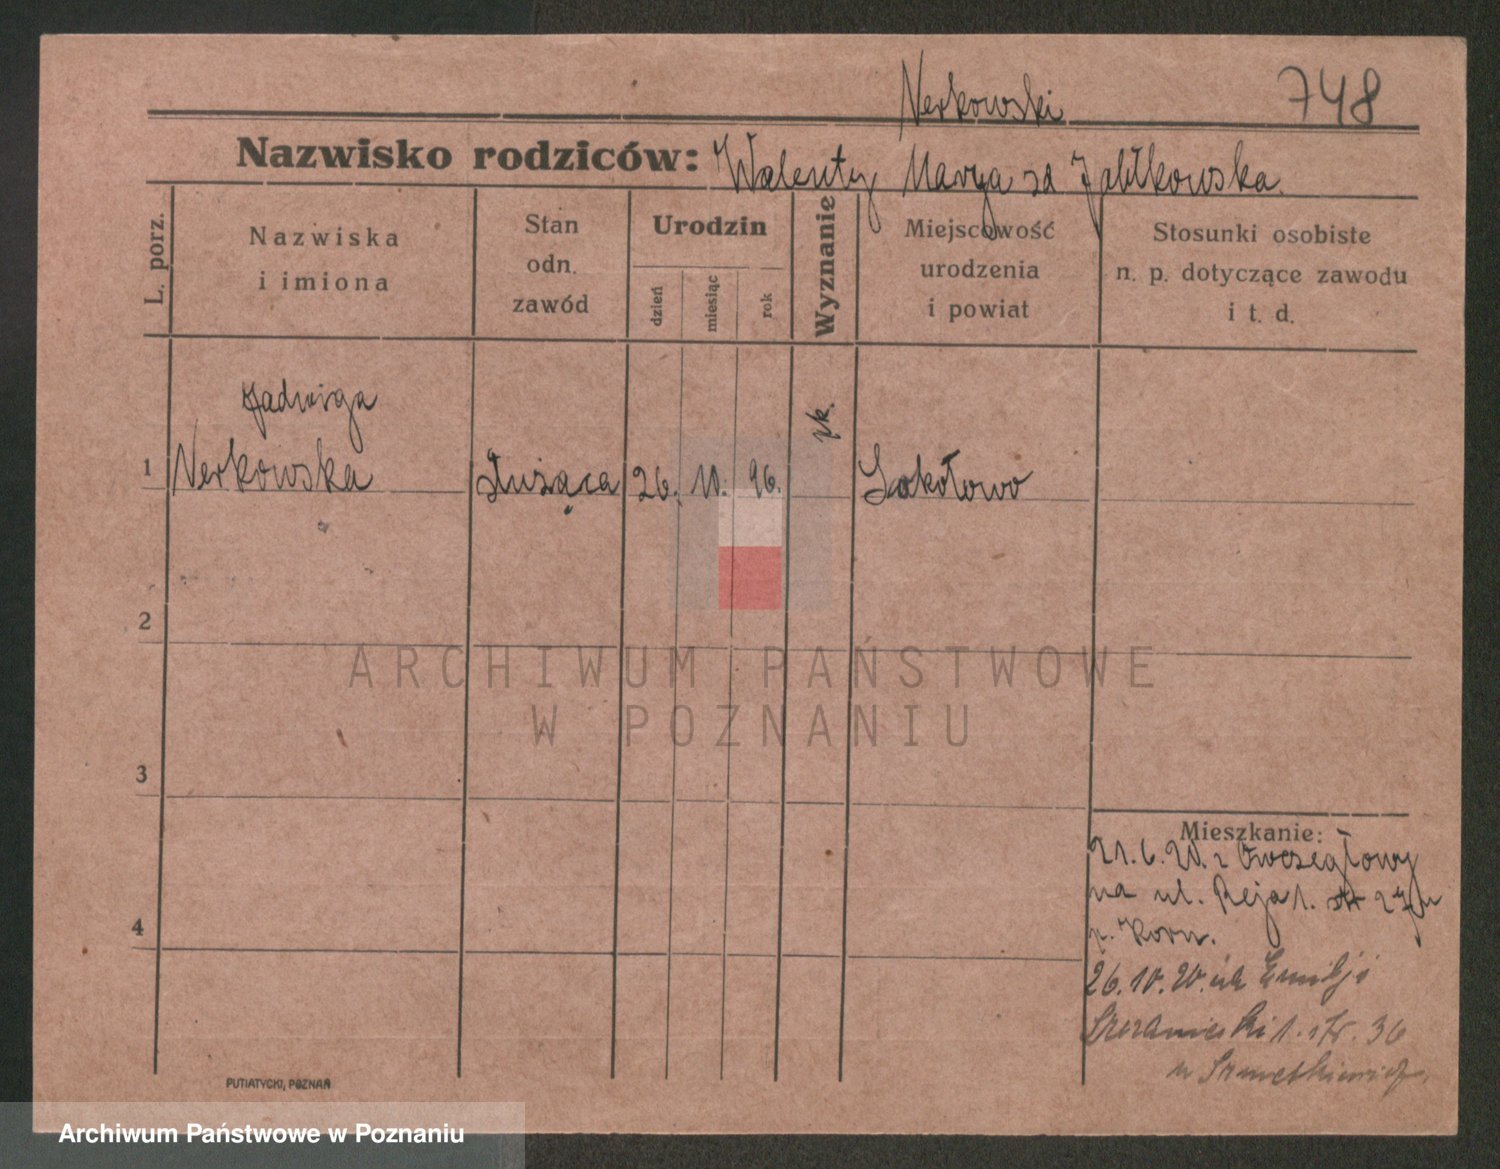 Nerkowski
748
Nazwisko rodziców: Walenty Marya zd Jabłkowska.
L. porz.
Nazwiska
i imiona
Stan
odn.
zawód
Urodzin
dzień
miesiąc
rok
Wyznanie
Miejscowość
urodzenia
i powiat
Stosunki osobiste
n. p. dotyczące zawodu
i t. d.
Jadwiga
1 Nerkowska służąca 26. 10. 96. rk. Sokołowo
2
3
4
ARCHIWUM PAŃSTWOWE
W POZNANIU
Mieszkanie:
21.6.20. z Owczegłowy
na ul. Reja 1. str 27
p. Korn.
26.10.20. ul. Emilji
Szczanieckij 1. str. 36
u
PUTIATYCKI, POZNAŃ
Archiwum Państwowe w Poznaniu